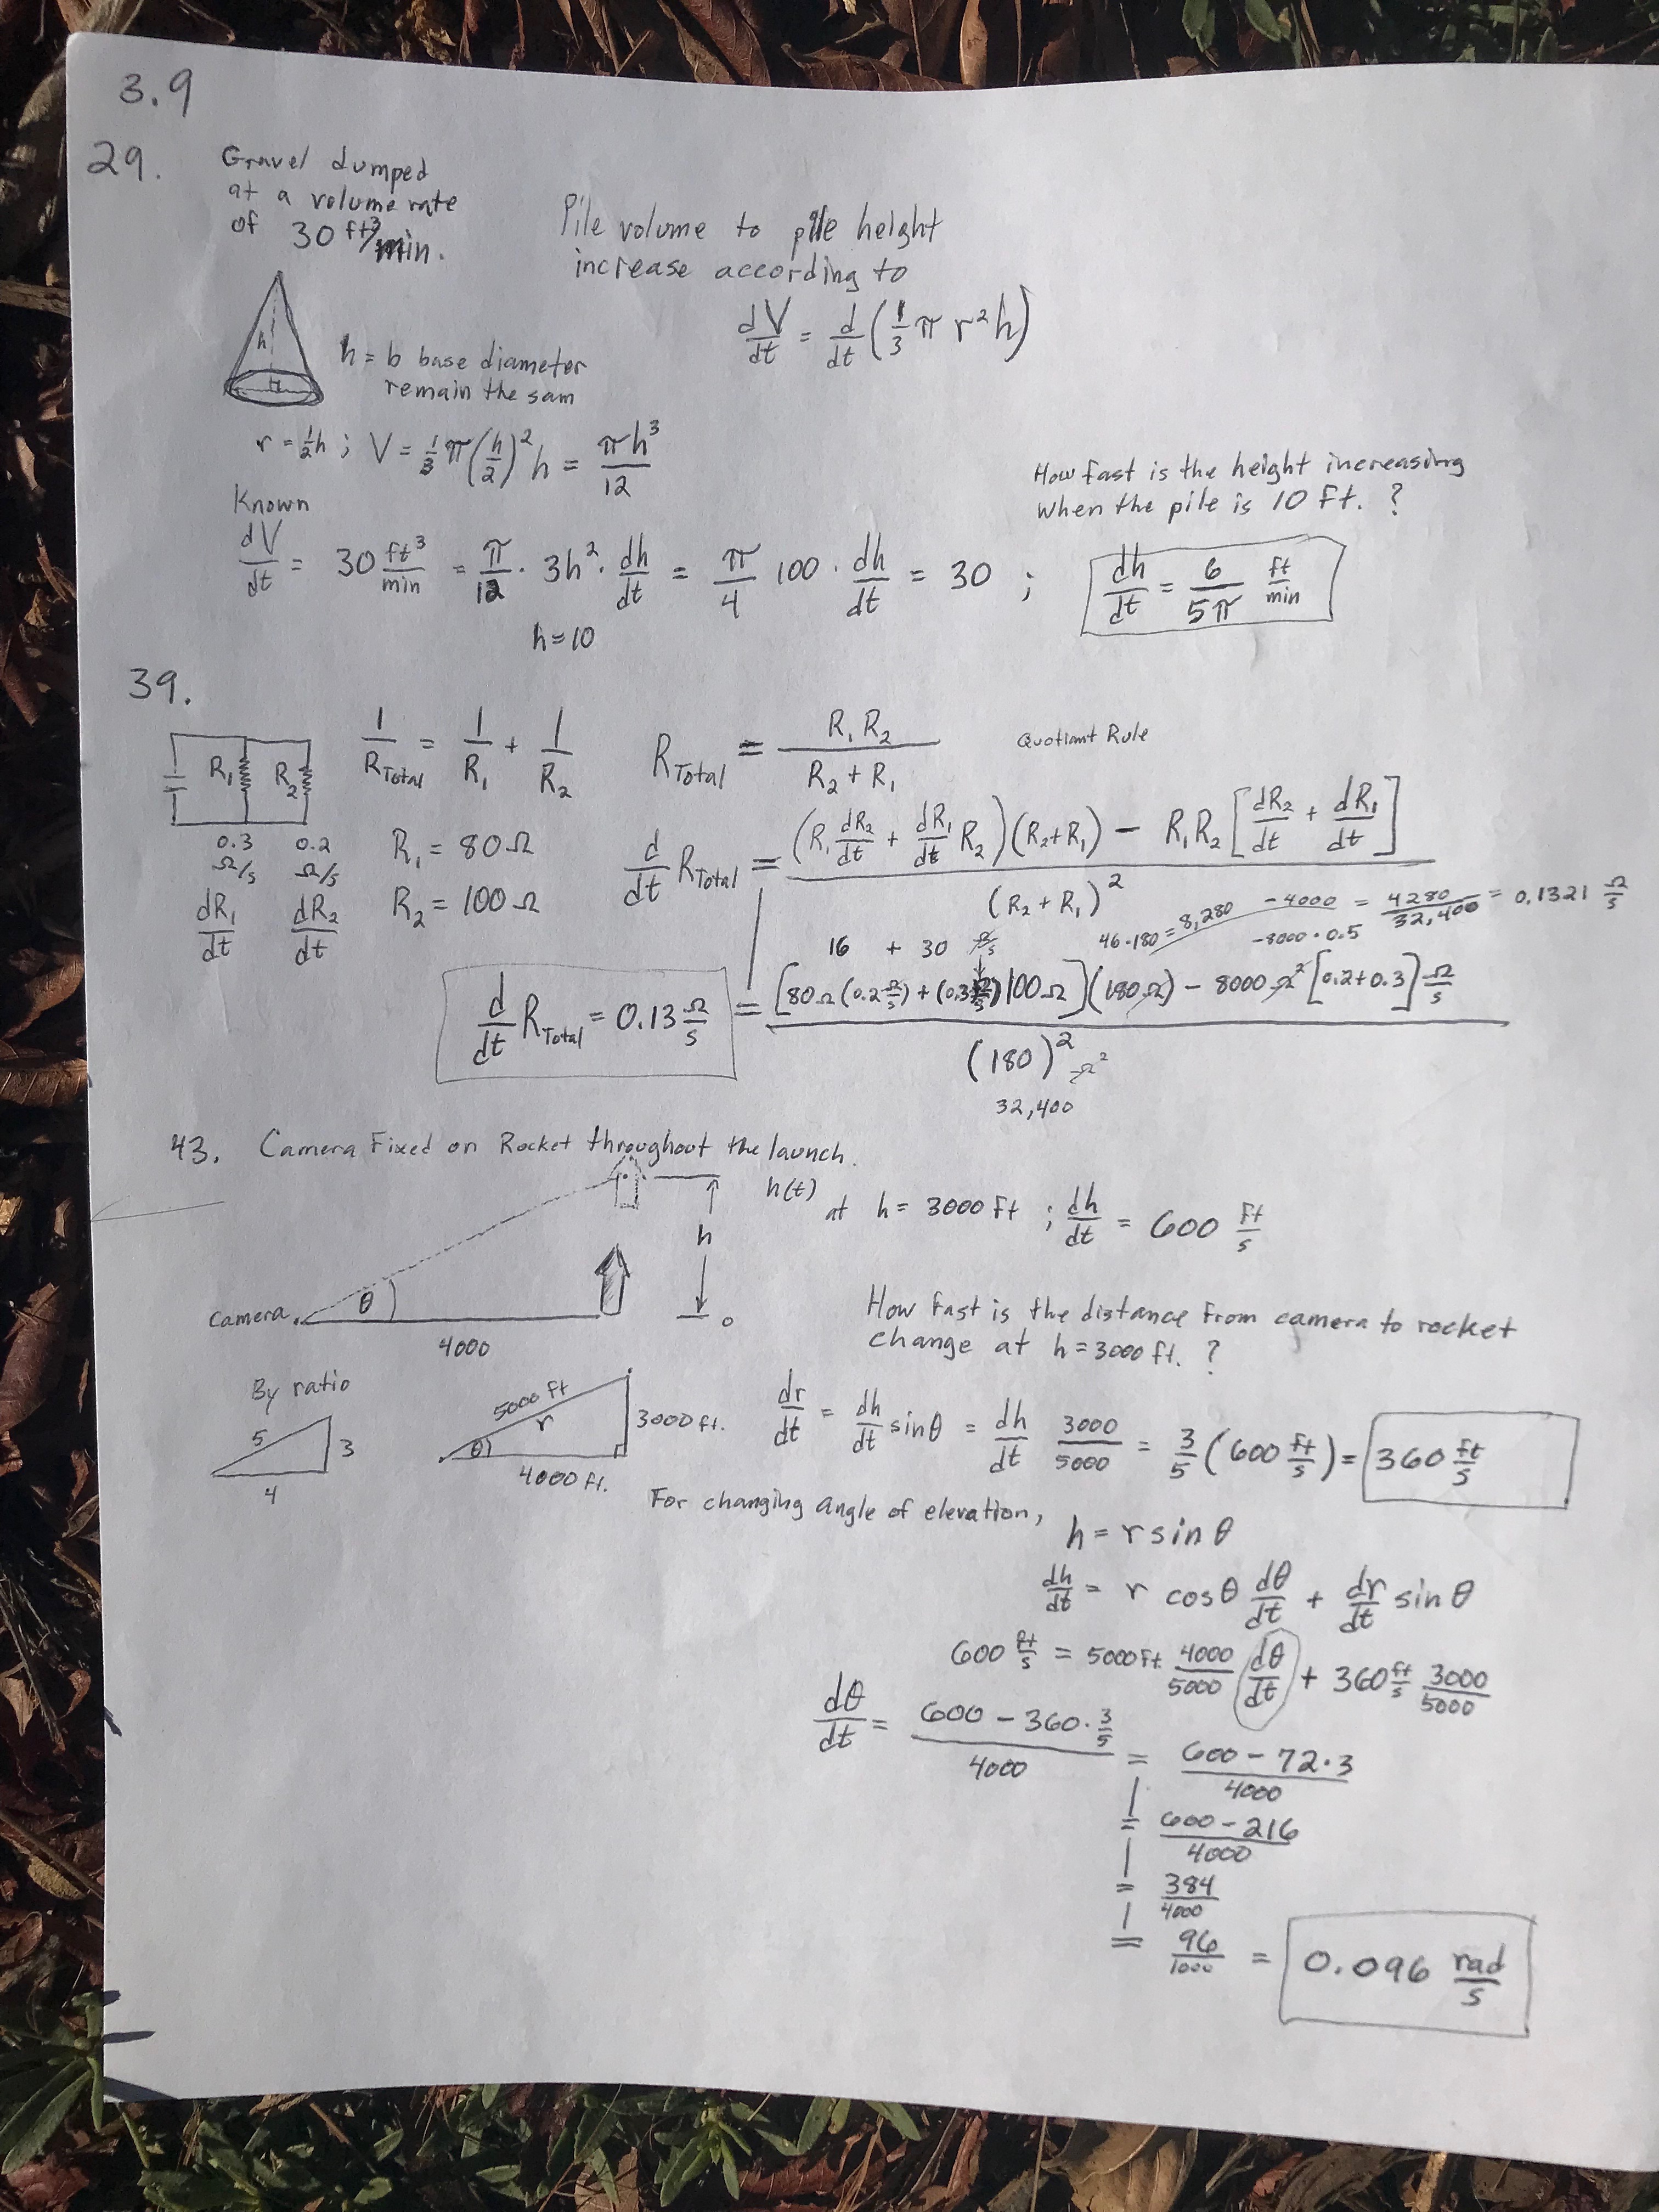 3.9
29.
Gravel dumped
at a volume rate
of 30 ft³/min.
Pile volume to pile height
increase according to
dV/dt = d/dt (1/3 π r² h)
h
h = b base diameter
remain the sam
r = ½h ; V = ⅓ π (h/2)² h = πh³/12
How fast is the height increasing
when the pile is 10 ft. ?
Known
dV/dt = 30 ft³/min = π/12 · 3h² · dh/dt = π/4 100 · dh/dt = 30 ; dh/dt = 6/5π ft/min
h = 10
39.
R₁ R₂
1/R_Total = 1/R₁ + 1/R₂
R_Total = R₁R₂/(R₂ + R₁)
Quotiant Rule
0.3 Ω/s 0.2 Ω/s
dR₁/dt dR₂/dt
R₁ = 80 Ω
R₂ = 100 Ω
d/dt R_Total = ((R₁ dR₂/dt + dR₁/dt R₂)(R₂+R₁) − R₁R₂ [dR₂/dt + dR₁/dt])/(R₂ + R₁)²
46·180 = 8,280 − 4000 = 4280/32,400 = 0.1321 Ω/s
−8000 · 0.5
16 + 30 Ω/s
d/dt R_Total = 0.13 Ω/s = ([80Ω (0.2 Ω/s) + (0.3 Ω/s) 100Ω](180Ω) − 8000 Ω² [0.2+0.3] Ω/s)/(180)² Ω²
32,400
43. Camera Fixed on Rocket throughout the launch.
h(t)
at h = 3000 ft ; dh/dt = 600 ft/s
h
θ
Camera
4000
0
How fast is the distance from camera to rocket
change at h = 3000 ft. ?
By ratio
5
3
4
5000 ft
r
3000 ft.
θ
4000 ft.
dr/dt = dh/dt sinθ = dh/dt 3000/5000 = 3/5 (600 ft/s) = 360 ft/s
For changing angle of elevation,
h = r sin θ
dh/dt = r cosθ dθ/dt + dr/dt sin θ
600 ft/s = 5000 ft 4000/5000 dθ/dt + 360 ft/s 3000/5000
dθ/dt = (600 − 360 · 3/5)/4000 = (600 − 72·3)/4000
= (600 − 216)/4000
= 384/4000
= 96/1000 = 0.096 rad/s